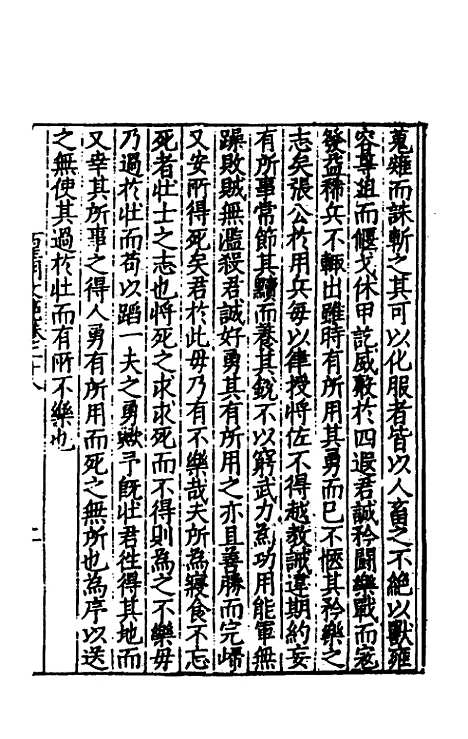 蒐薙而誅斬之其可以化服者皆以人畜之不絶以獸雍
容尊俎而偃戈休甲訖威嚴於四遐君誠矜鬬樂戰而宼
發益稀兵不輒出雖時有所用其勇而已不愜其矜樂之
志矣張公於用兵每以律授將佐不得越教誡違期約妄
有所事常節其驖而養其銳不以窮武力為功用能軍無
躁敗賊無濫殺君誠好勇其有所用之亦且善勝而完歸
又安所得死矣君於此毋乃有不樂哉夫所為寢食不忘
死者壯士之志也將死之求求死而不得則為之不樂毋
乃過於壯而苟以蹈一夫之勇歟予旣壯君徃得其地而
又幸其所事之得人勇有所用而死之無所也為序以送
之無使其過於壯而有所不樂也
二